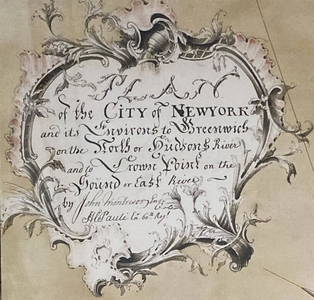 PLAN
of the CITY of NEWYORK
and its Environs to Greenwich
on the North or Hudsons River
and to Crown Point on the
Sound or East River
by John Montresor